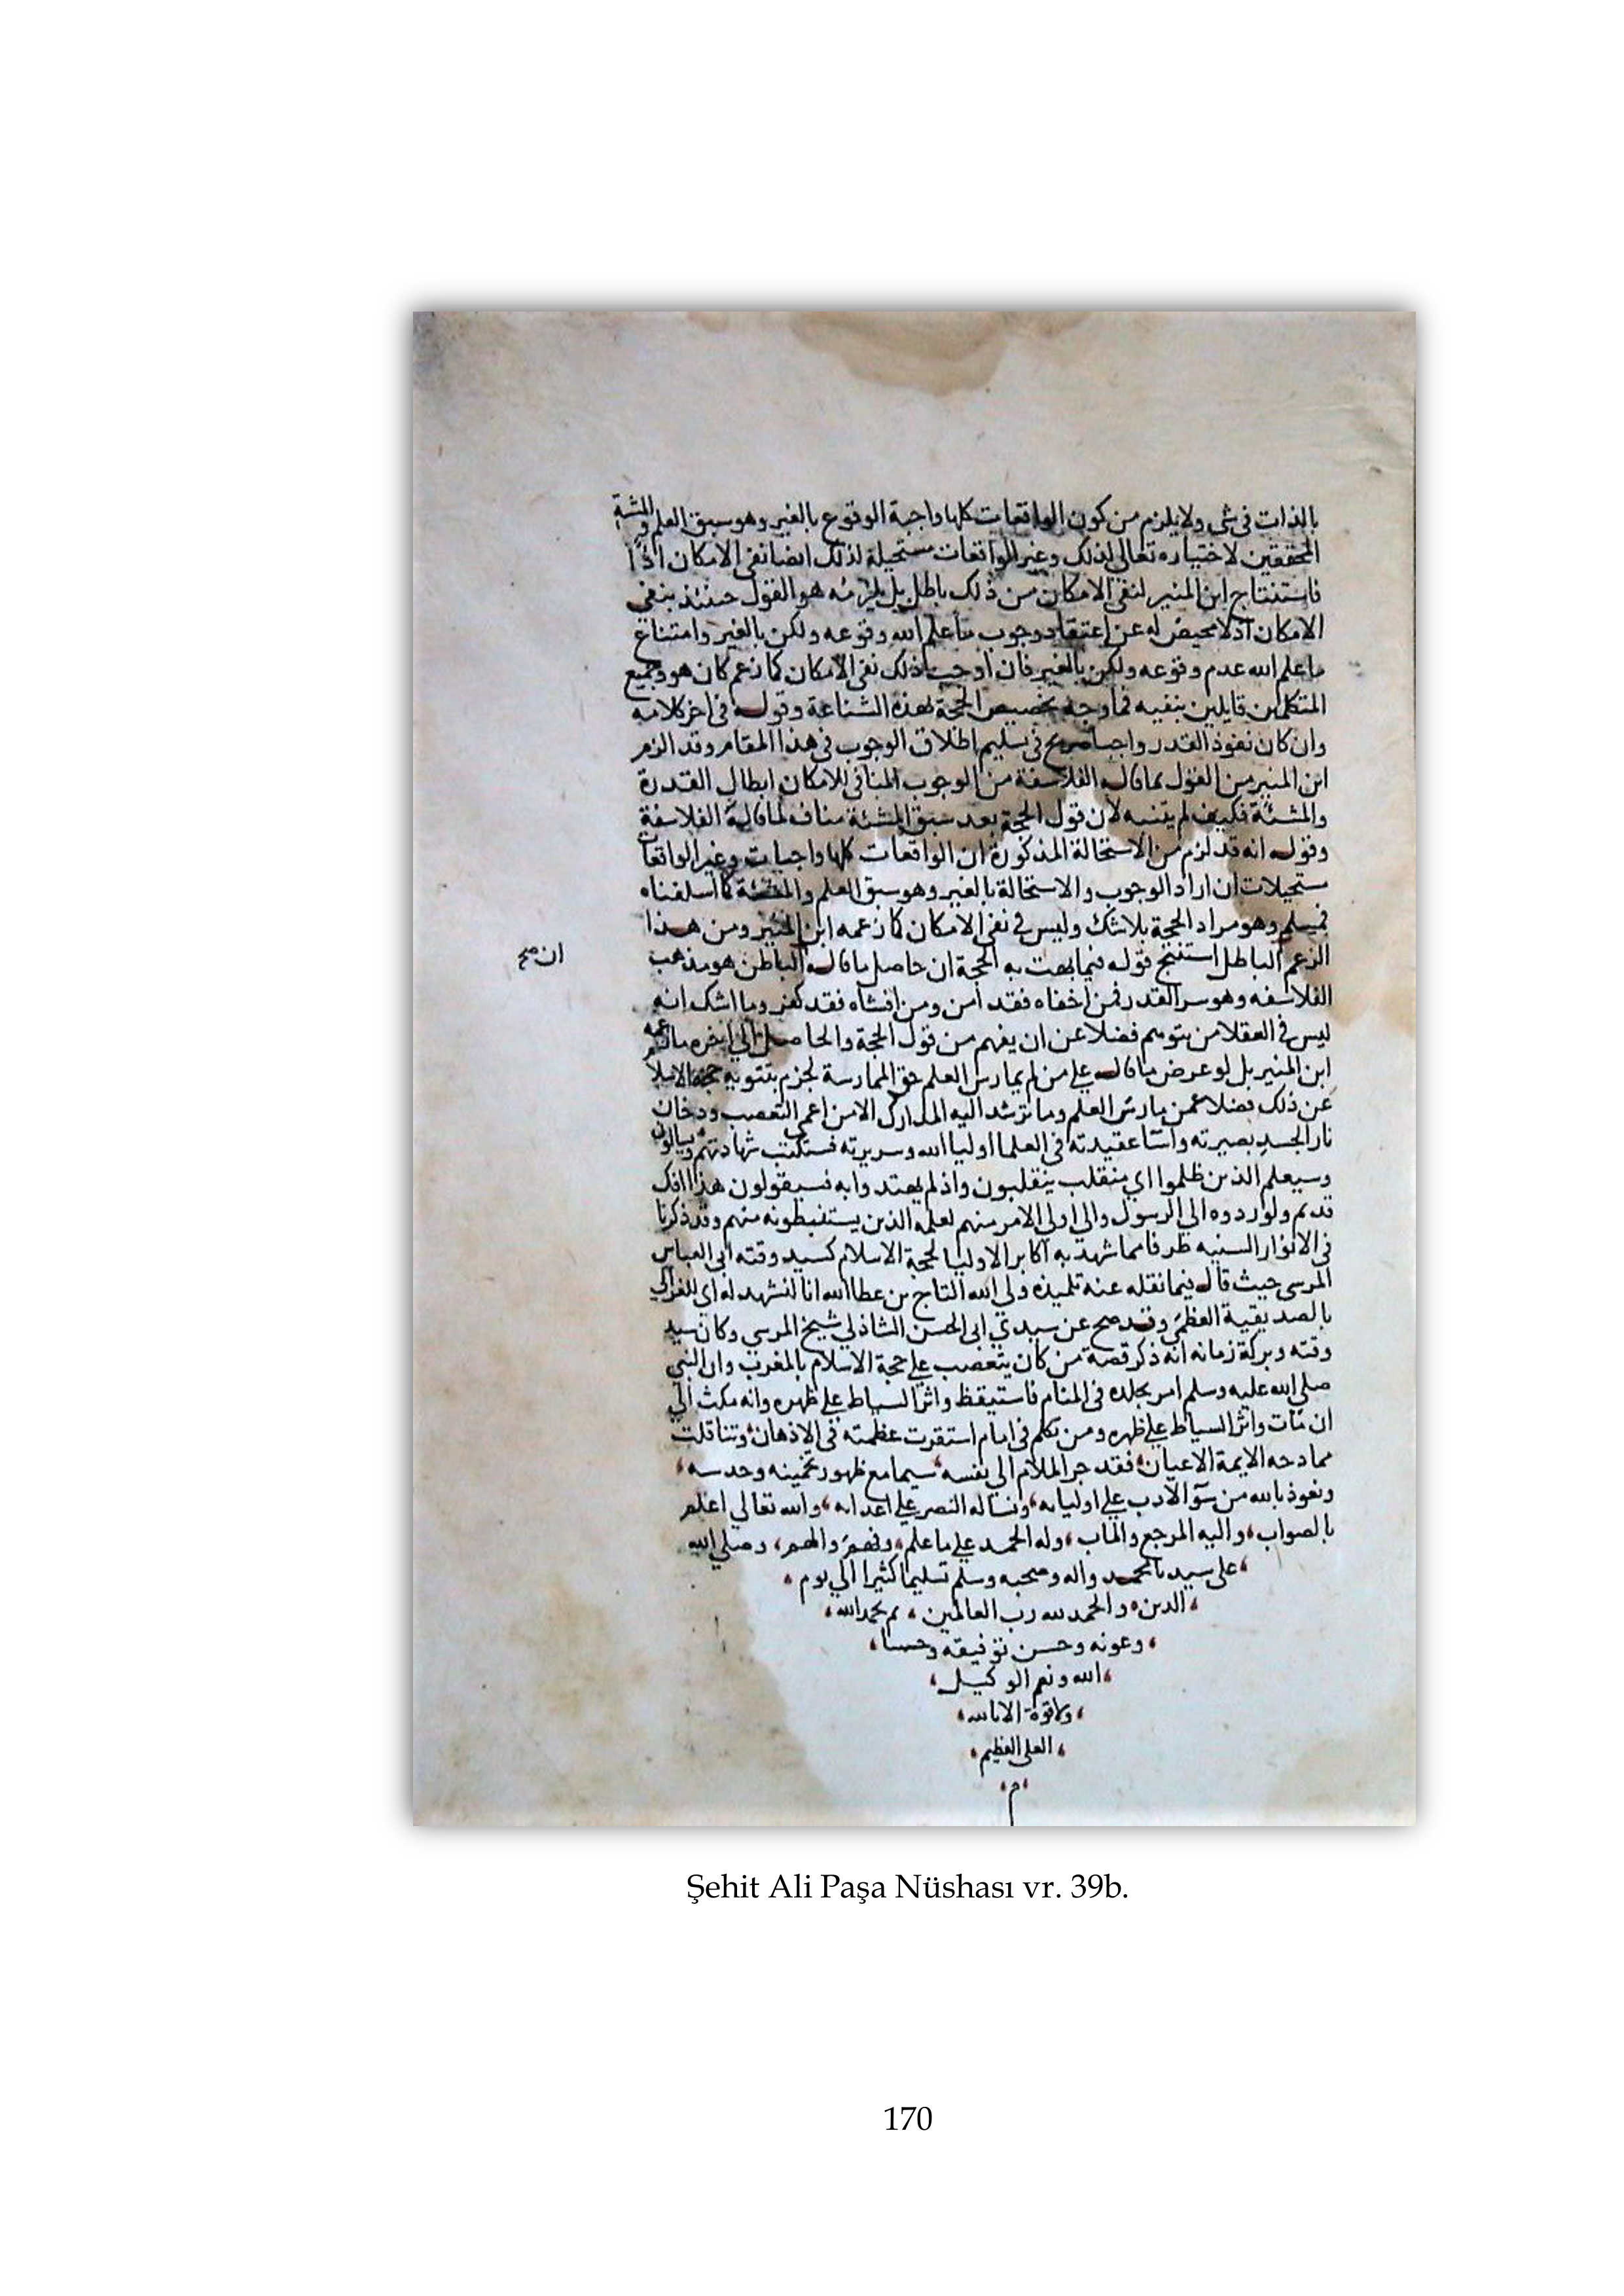 بالذات فى شى ولا يلزم من كون الواقعات كلها واجبة الوقوع بالغير وهو سبق العلم والمشئة
المحققين لاختياره تعالى لذلك وغير الواقعات مستحيلة لذلك ايضا نفى الامكان اذا
فاستنتاج ابن المنير لنفى الامكان من ذلك باطل بل يلزمه هو القول حينئذ بنفى
الامكان اذ لا محيص له عن اعتقاد وجوب ما علم الله وقوعه ولكن بالغير وامتناع
ما علم الله عدم وقوعه ولكن بالغير فان اوجب ذلك نفى الامكان كما زعم كان هو وجميع
المتكلمين قايلين بنفيه فما وجه تخصيص الحجة بهذه الشناعة وقوله فى اخر كلامه
وان كان نفوذ القدر واجبا صريح فى تسليم اطلاق الوجوب فى هذا المقام وقد الزم
ابن المنير من القول بما قاله الفلاسفة من الوجوب المنافى للامكان ابطال القدرة
والمشئة فكيف لم يتنبه لان قول الحجة بعد سبق المشئة مناف لما قاله الفلاسفة
وقوله انه قد لزم من الاستحالة المذكورة ان الواقعات كلها واجبات وغير الواقعات
مستحيلات ان اراد الوجوب والاستحالة بالغير وهو سبق العلم والمشئة كما اسلفناه
فمسلم وهو مراد الحجة بلا شك وليس فى نفى الامكان كما زعمه ابن المنير ومن هذا
الزعم الباطل استنتج قوله فيما بهت به الحجة ان حاصل ما قاله الباطن هو مذهب
ان صح
الفلاسفه وهو سر القدر فمن اخفاه فقد امن ومن افشاه فقد كفر وما اشك انه
ليس فى العقلا من يتوهم فضلا عن ان يفهم من قول الحجة والحاصل الى اخره ما زعمه
ابن المنير بل لو عرض ما قاله على من لم يمارس العلم حق الممارسة لجزم بتنويه حجة الاسلا
عن ذلك فضلا عمن مارس العلم وما ترشد اليه المدارك الا من اعمى التعصب ودخان
نار الحسد بصيرته واسا عقيدته فى العلما اوليا الله وسريرته فستكتب شهادتهم ويسالون
وسيعلم الذين ظلموا اي منقلب ينقلبون واذ لم يهتدوا به فسيقولون هذا افك
قديم ولو ردوه الى الرسول والى اولى الامر منهم لعلمه الذين يستنبطونه منهم وقد ذكرنا
فى الانوار السنيه طرفا مما شهد به اكابر الاوليا لحجة الاسلام كسيد وقته ابى العباس
المرسى حيث قال فيما نقله عنه تلميذه ولى الله التاج بن عطا الله انا لنشهد له اى للغزالى
بالصديقية العظمى وقد صح عن سيدي ابى الحسن الشاذلي شيخ المرسي وكان سيد
وقته وبركة زمانه انه ذكر قصة من كان يتعصب على حجة الاسلام بالمغرب وان النبى
صلى الله عليه وسلم امر بجلده فى المنام فاستيقظ واثر السياط على ظهره وانه مكث الى
ان مات واثر السياط على ظهره ومن تكلم فى امام استقرت عظمته فى الاذهان وتناقلت
ممادحه الايمة الاعيان فقد جر الملام الى نفسه سيما مع ظهور تخمينه وحدسه
ونعوذ بالله من سؤ الادب على اوليايه ونساله النصر على اعدايه والله تعالى اعلم
بالصواب واليه المرجع والماب وله الحمد على ما علم وفهم والهم وصلى الله
على سيدنا محمد واله وصحبه وسلم تسليما كثيرا الى يوم
الدين والحمد لله رب العالمين تم بحمد الله
وعونه وحسن توفيقه وحسبنا
الله ونعم الوكيل
ولا قوة الا بالله
العلى العظيم
م
Şehit Ali Paşa Nüshası vr. 39b.
170